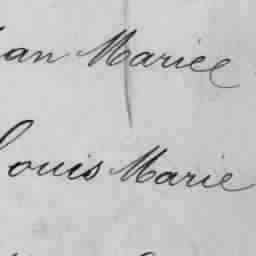 ean Mariee
Louis Marie